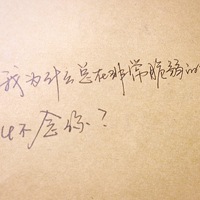 我为什么总在非常脆弱的
怀念你?